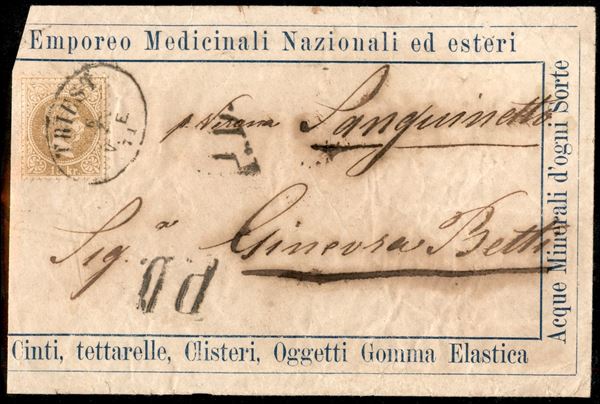 Emporeo Medicinali Nazionali ed esteri
TRIEST
p. Verona Sanguinetto
Sig.ra Ginevra Betti
P.D.
Acque Minerali d'ogni Sorte
Cinti, tettarelle, Clisteri, Oggetti Gomma Elastica